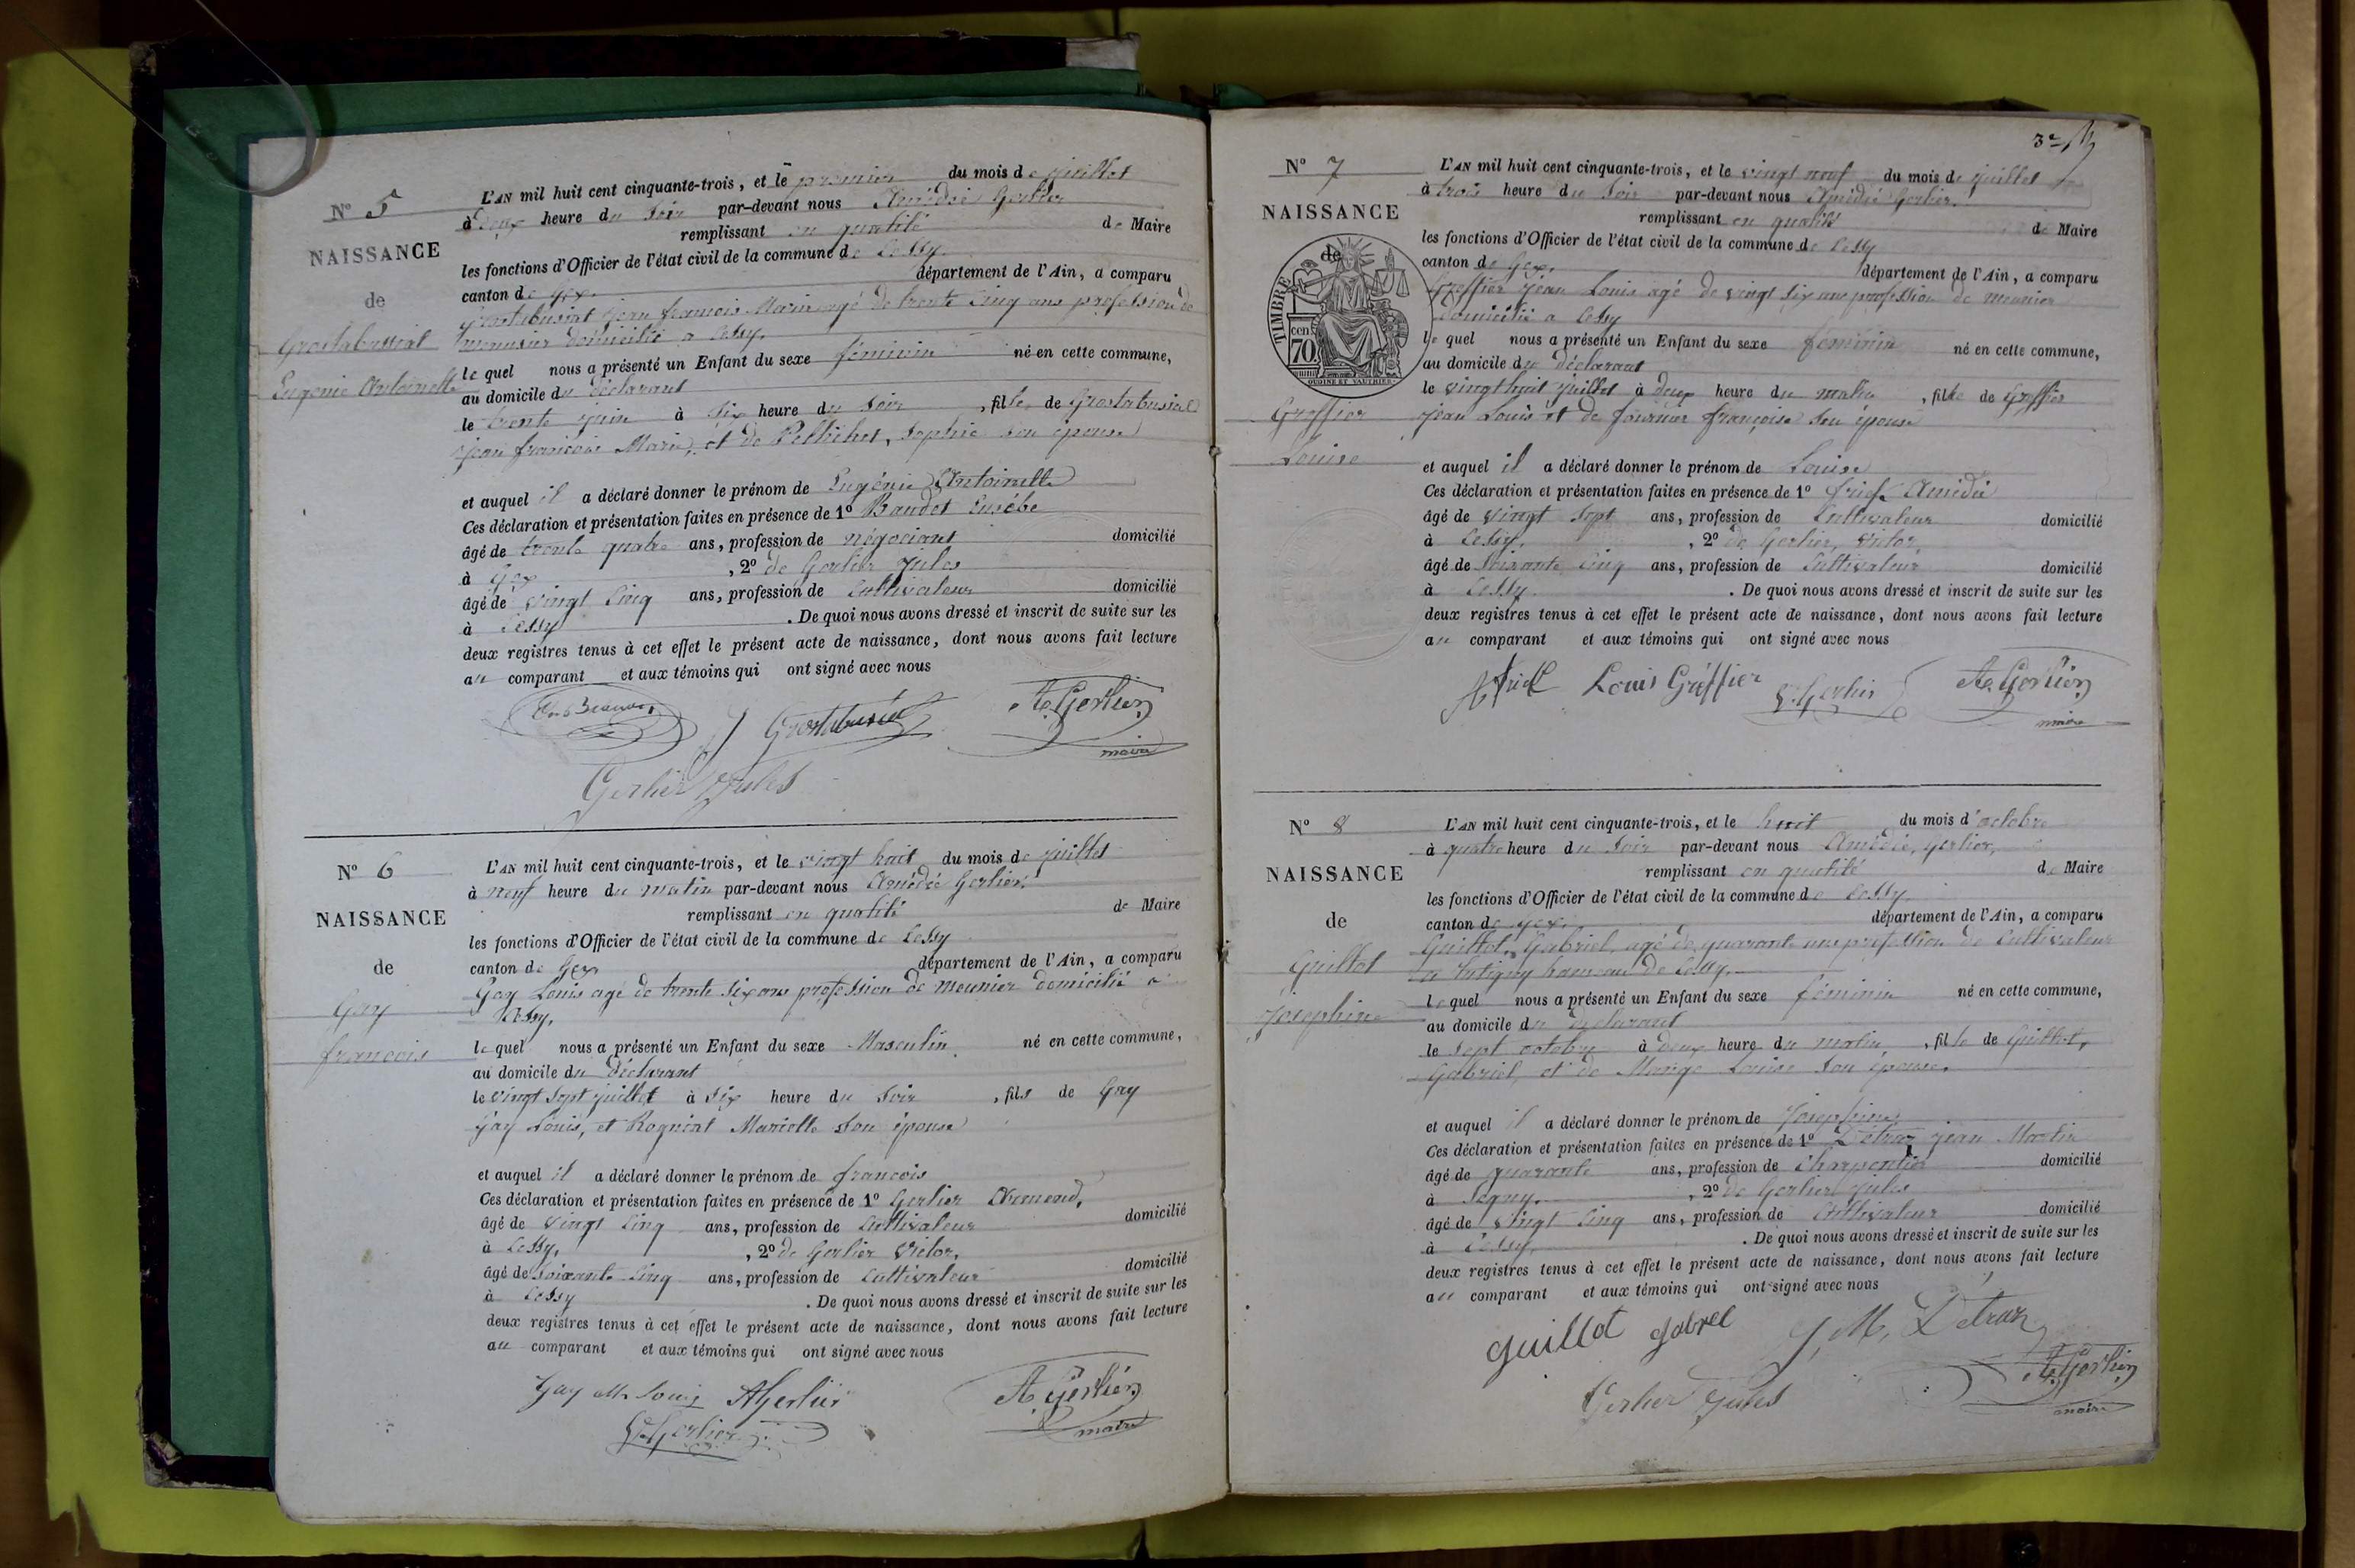 N° 5
NAISSANCE
de
Grostabussiat
Eugénie Antoinette
L'AN mil huit cent cinquante-trois, et le premier du mois de juillet
à deux heure du soir par-devant nous Amédée Gerlier
remplissant en qualité de Maire
les fonctions d'Officier de l'état civil de la commune de Cessy.
canton de Gex. département de l'Ain, a comparu
Grostabusiat jean francois Marie agé de trente cinq ans profession de
menuisier domicilié a Cessy.
le quel nous a présenté un Enfant du sexe féminin né en cette commune,
au domicile du déclarant
le trente juin à six heure du soir, fille de Grostabusiat
jean francois Marie, et de Pellichet, Sophie son épouse
et auquel il a déclaré donner le prénom de Eugénie Antoinette
Ces déclaration et présentation faites en présence de 1° Baudet Eusébe
âgé de trente quatre ans, profession de négociant domicilié
à Gex, 2° de Gerlier Jules
âgé de vingt cinq ans, profession de Cultivateur domicilié
à Cessy. De quoi nous avons dressé et inscrit de suite sur les
deux registres tenus à cet effet le présent acte de naissance, dont nous avons fait lecture
au comparant et aux témoins qui ont signé avec nous
J Grostabusiat
A. Gerlier
maire
Gerlier Jules
N° 6
NAISSANCE
de
Gay
francois
L'AN mil huit cent cinquante-trois, et le vingt huit du mois de juillet
à neuf heure du matin par-devant nous Amédée Gerlier.
remplissant en qualité de Maire
les fonctions d'Officier de l'état civil de la commune de Cessy
canton de Gex département de l'Ain, a comparu
Gay Louis agé de trente six ans profession de meunier domicilié a
Cessy.
le quel nous a présenté un Enfant du sexe Masculin né en cette commune,
au domicile du déclarant
le vingt sept juillet à six heure du soir, fils de Gay
Gay Louis, et Rogniat Mariette son épouse
et auquel il a déclaré donner le prénom de francois
Ces déclaration et présentation faites en présence de 1° Gerlier Armand,
âgé de vingt cinq ans, profession de Cultivateur domicilié
à Cessy, 2° de Gerlier Victor,
âgé de soixante cinq ans, profession de Cultivateur domicilié
à Cessy. De quoi nous avons dressé et inscrit de suite sur les
deux registres tenus à cet effet le présent acte de naissance, dont nous avons fait lecture
au comparant et aux témoins qui ont signé avec nous
Gay Louis AGerlier
A. Gerlier
maire
V. Gerlier
3e
N° 7
NAISSANCE
de
TIMBRE
70 cen.
OUDINÉ ET VAUTHIER
Greffier
Louise
L'AN mil huit cent cinquante-trois, et le vingt neuf du mois de juillet
à trois heure du soir par-devant nous Amédée Gerlier.
remplissant en qualité de Maire
les fonctions d'Officier de l'état civil de la commune de Cessy
canton de Gex. département de l'Ain, a comparu
Greffier jean Louis agé de vingt six ans profession de meunier
domicilié a Cessy
le quel nous a présenté un Enfant du sexe féminin né en cette commune,
au domicile du déclarant
le vingt huit juillet à deux heure du matin, fille de Greffier
jean Louis et de fournier françoise son épouse
et auquel il a déclaré donner le prénom de Louise
Ces déclaration et présentation faites en présence de 1° Amédée
âgé de vingt sept ans, profession de Cultivateur domicilié
à Cessy, 2° de Gerlier, Victor,
âgé de soixante cinq ans, profession de Cultivateur domicilié
à Cessy. De quoi nous avons dressé et inscrit de suite sur les
deux registres tenus à cet effet le présent acte de naissance, dont nous avons fait lecture
au comparant et aux témoins qui ont signé avec nous
Louis Gréffier V. Gerlier A. Gerlier
maire
N° 8
NAISSANCE
de
Guillot
Josephine
L'AN mil huit cent cinquante-trois, et le huit du mois d'octobre
à quatre heure du soir par-devant nous Amédée, Gerlier,
remplissant en qualité de Maire
les fonctions d'Officier de l'état civil de la commune de Cessy
canton de Gex. département de l'Ain, a comparu
Guillot, Gabriel, agé de quarante ans profession de Cultivateur
a hameau de Cessy.
le quel nous a présenté un Enfant du sexe féminin né en cette commune,
au domicile du déclarant
le sept octobre à deux heure du matin, fille de Guillot,
Gabriel, et de Louise son épouse.
et auquel il a déclaré donner le prénom de Josephine
Ces déclaration et présentation faites en présence de 1° Detraz jean Martin
âgé de quarante ans, profession de Charpentier domicilié
à Segny, 2° de Gerlier Jules
âgé de vingt cinq ans, profession de Cultivateur domicilié
à Cessy. De quoi nous avons dressé et inscrit de suite sur les
deux registres tenus à cet effet le présent acte de naissance, dont nous avons fait lecture
au comparant et aux témoins qui ont signé avec nous
guillot gabrel J. M. Detraz
A. Gerlier
maire
Gerlier Jules